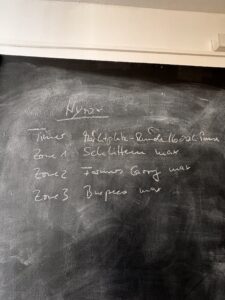 Hyrox
Timer
Zone 1 Schlitten max
Zone 2 Farmers Carry max
Zone 3 Burpees max